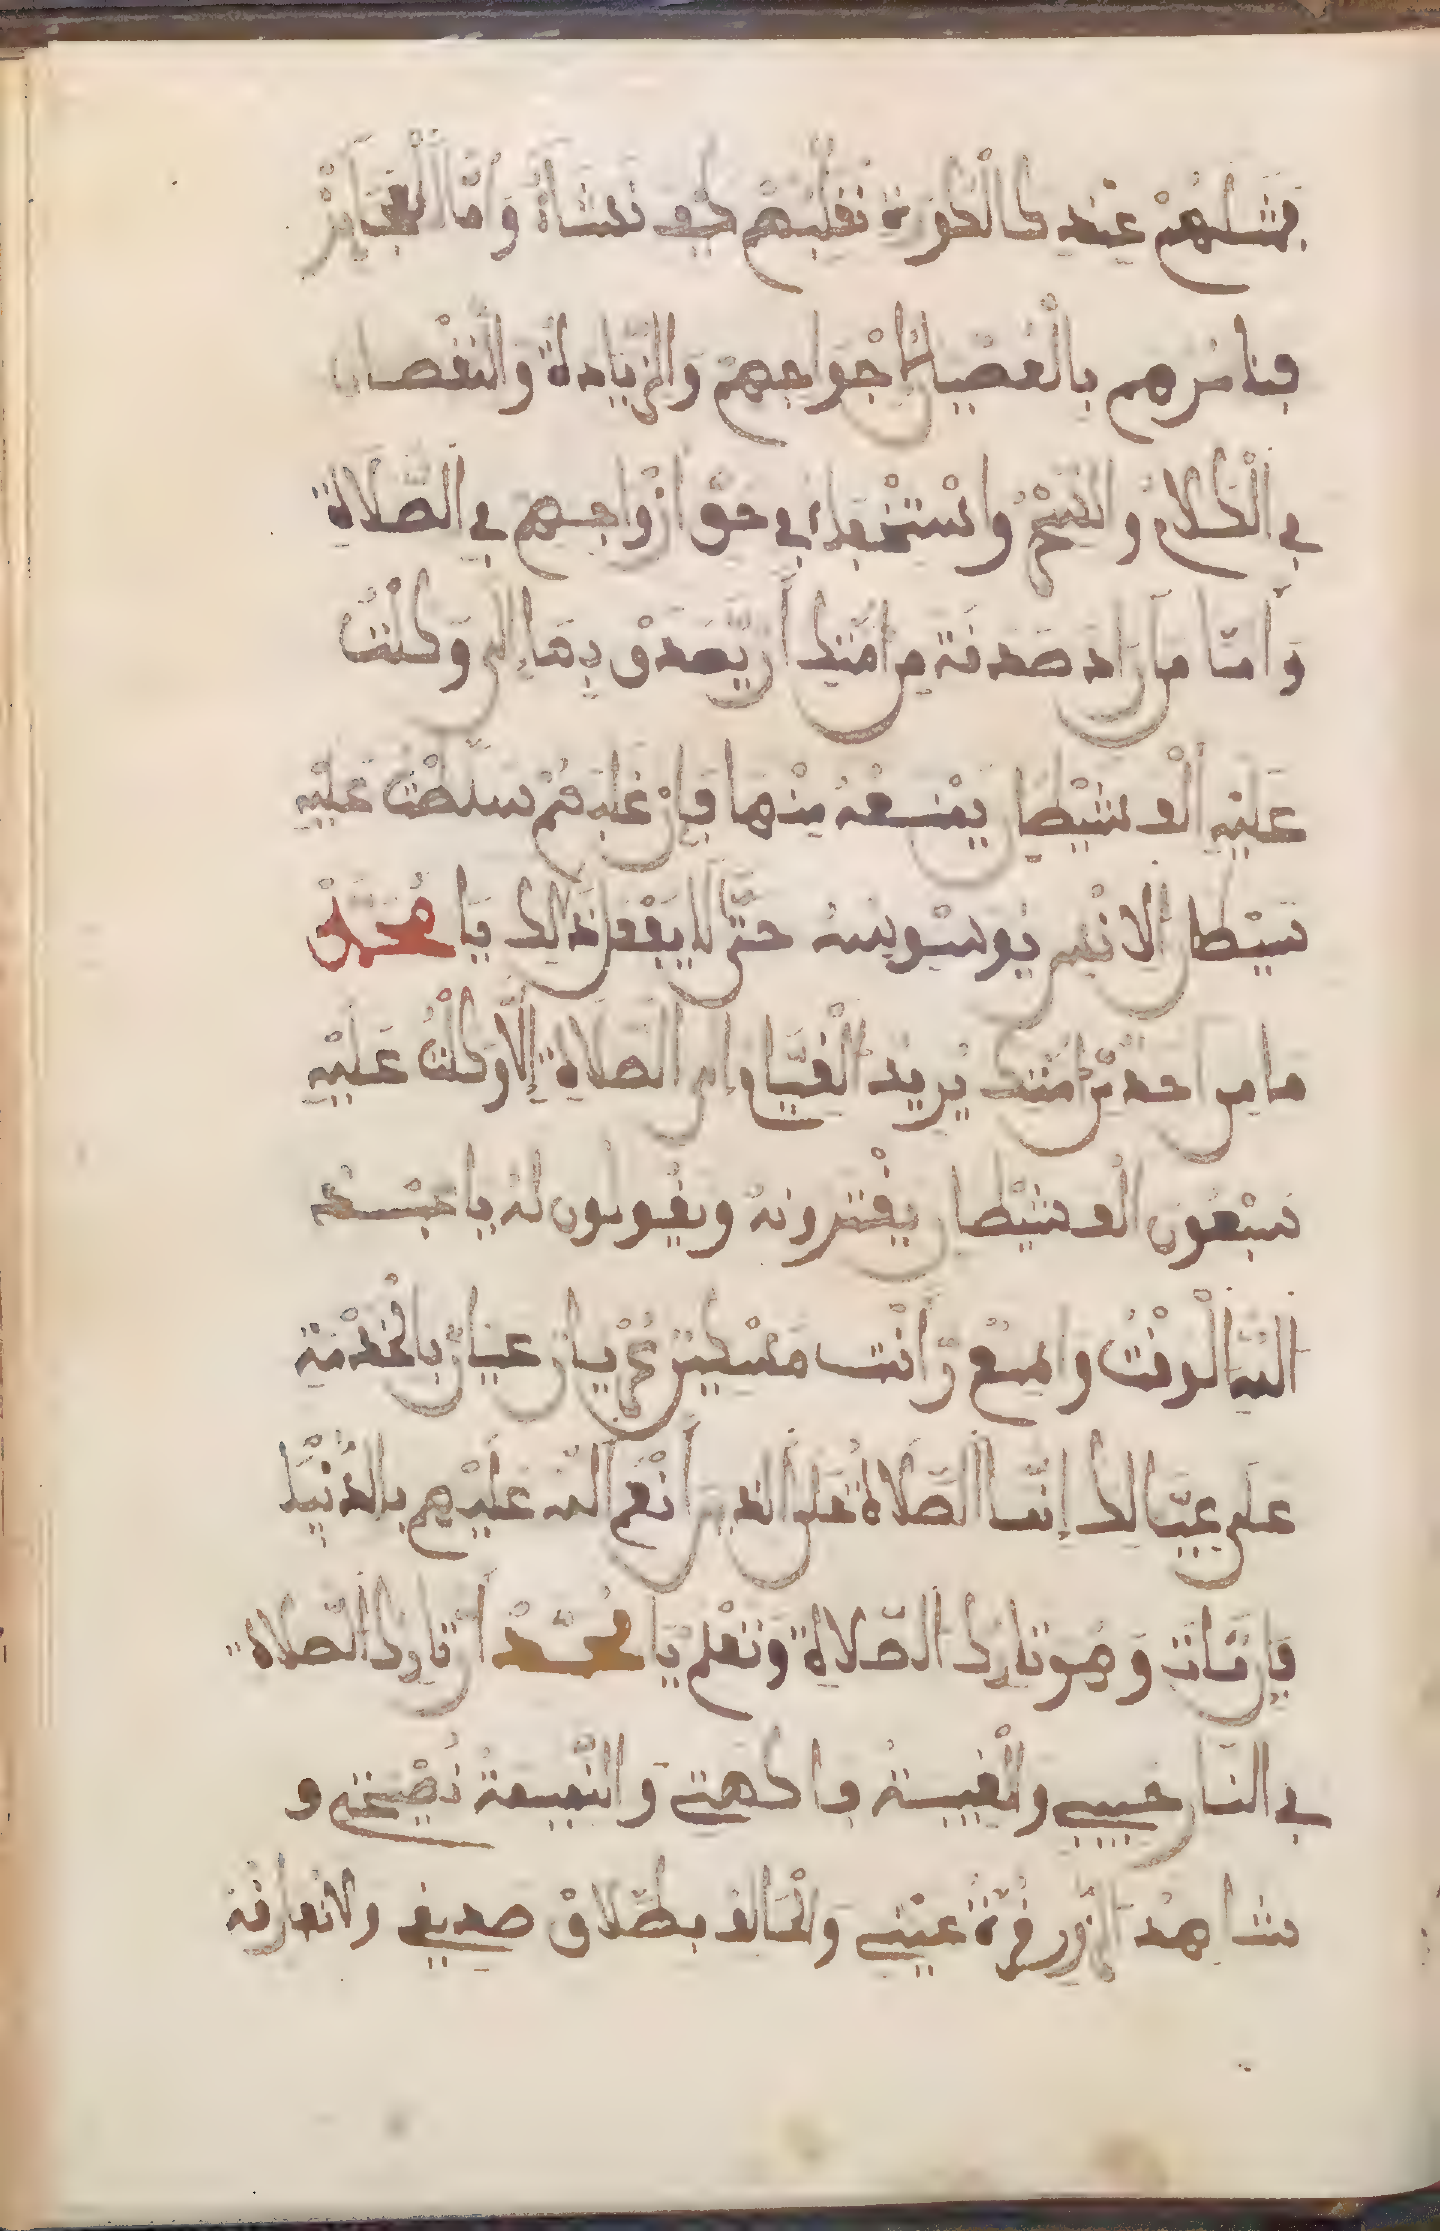 فمثلهم عند كالكورة نقلبهم كيف نشاء وأما العجايز
فنامرهم بالعصيان لأزواجهم والزيادة والنقصان
في الكلام والقبح واستخفاء في حق أزواجهم في الصلاة
وأما من أراد صدقة من أمتك أن يتصدق بماله وكلت
عليه ألف شيطان يمنعه منها فإن غلبهم سلطت عليه
شيطان الانس يوسوسه حتى لا يفعل ذالك يا محمد
ما من احد من أمتك يريد القيام إلى الصلاة إلا وكلت عليه
سبعون ألف شيطان يفترونه ويقولون له يا عبد
الله الوقت واسع وأنت مسكين عريان عيان بالخدمة
على عيالك إنما الصلاة على الذين أنعم الله عليهم بالدنيا
فإن مات وهو تارك الصلاة وتعلم يا محمد أن تارك الصلاة
في النار حبيبي والغيبة فاكهتي والنميمة نصيحتي و
شاهد الزور قرة عيني والحالف بطلاق صديقي ولا تعارفه